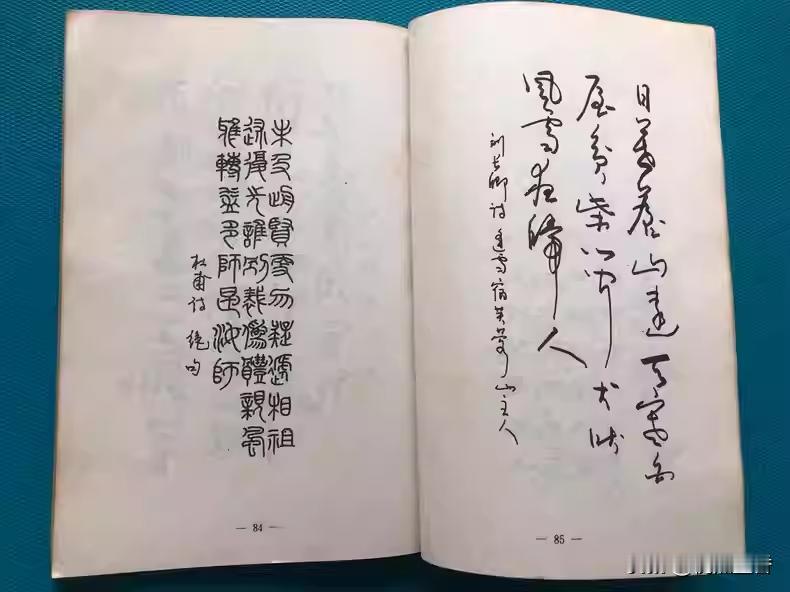 未及前賢更勿疑遞相祖
述復先誰別裁僞體親風
雅轉益多師是汝師
杜甫诗 绝句
— 84 —
日暮苍山遠天寒白
屋贫柴门闻犬吠
風雪夜歸人
刘长卿诗逢雪宿芙蓉山主人
— 85 —